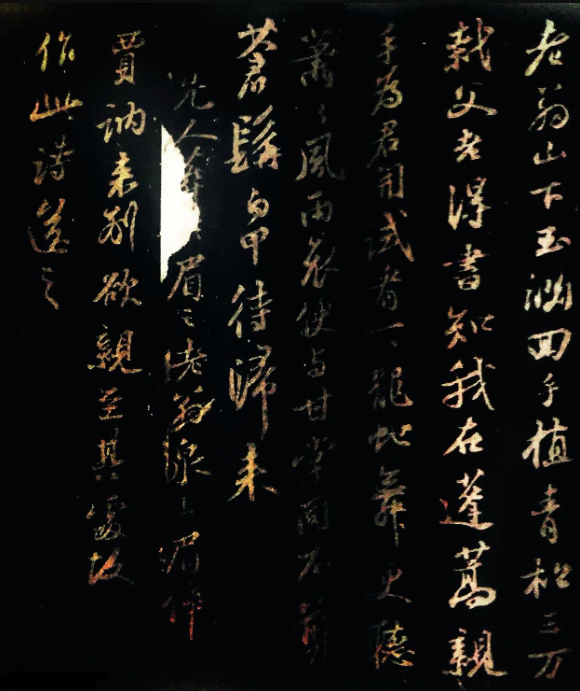 老翁山下玉淵回手植青松三万
栽父老得書知我在蓬蒿親
手為君開試看一一龍蛇舞更聽
蕭々風雨哀便与甘棠同不剪
蒼髯白甲待歸来
先人葬眉之老翁泉上
賈訥来别欲親至其處故
作此詩送之